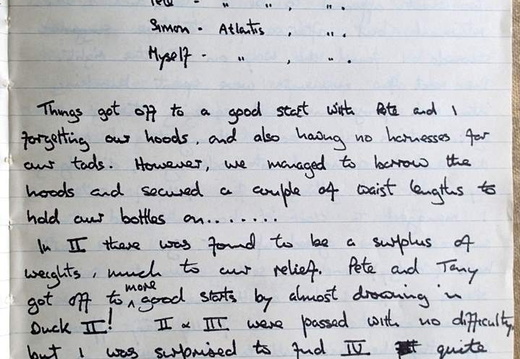 Pete - " " , " .
Simon - Atlantis , " .
Myself - " , " .
Things got off to a good start with Pete and I
forgetting our hoods, and also having no harnesses for
our tads. However, we managed to borrow the
hoods and secured a couple of waist lengths to
hold our bottles on.......
In II there was found to be a surplus of
weights, much to our relief. Pete and Tony
got off to more good starts by almost drowning in
Duck II! II & III were passed with no difficulty,
but I was surprised to find IV quite